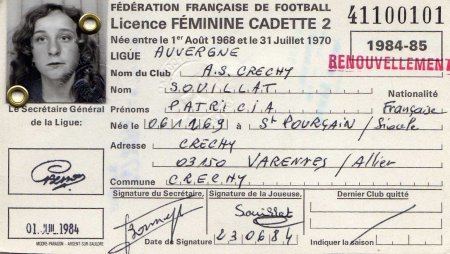 FÉDÉRATION FRANÇAISE DE FOOTBALL
Licence FÉMININE CADETTE 2
41100101
Née entre le 1er Août 1968 et le 31 Juillet 1970
1984-85
LIGUE AUVERGNE
RENOUVELLEMENT
Nom du Club A.S. CRECHY
Nom SOUILLAT
Nationalité
Prénoms PATRICIA
Française
Le Secrétaire Général
de la Ligue:
Née le 061169 à St POURÇAIN / Sioule
Adresse CRECHY
03150 VARENNES / Allier
Commune CRECHY
Signature du Secrétaire
Signature de la Joueuse
Dernier Club quitté
Souillat
01 JUIL 1984
Date de Signature 230684
Indiquer la saison